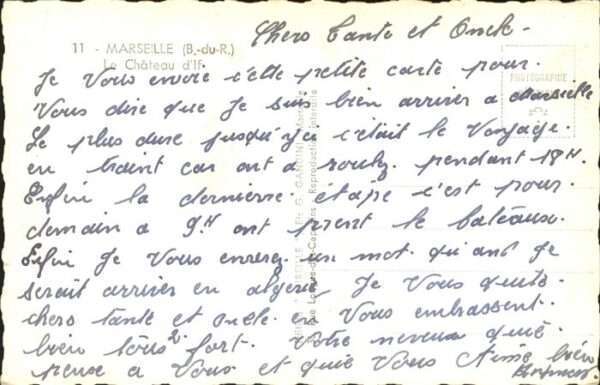 Chers Tante et Oncle.
11 - MARSEILLE (B.-du-R.)
Le Château d'If.
PHOTOGRAPHIE
Je Vous envoie cette petite carte pour.
Vous dire que Je suis bien arriver a Marseille
Le plus dure jusqu'ici c'était le Voyage.
en traint car ont a roulez pendant 18H
Enfin la dernierre étape c'est pour.
demain a 9H ont prent le bateaux.
Enfin Je Vous enverez un mot. quant Je
serait arriver en algerie Je Vous quite
chers tante et oncle. en Vous embrassent.
bien tous 2 fort. Votre neveux qui
pense a Vous et qui Vous Aime bien
G. GANDINI
Reproduction Interdite